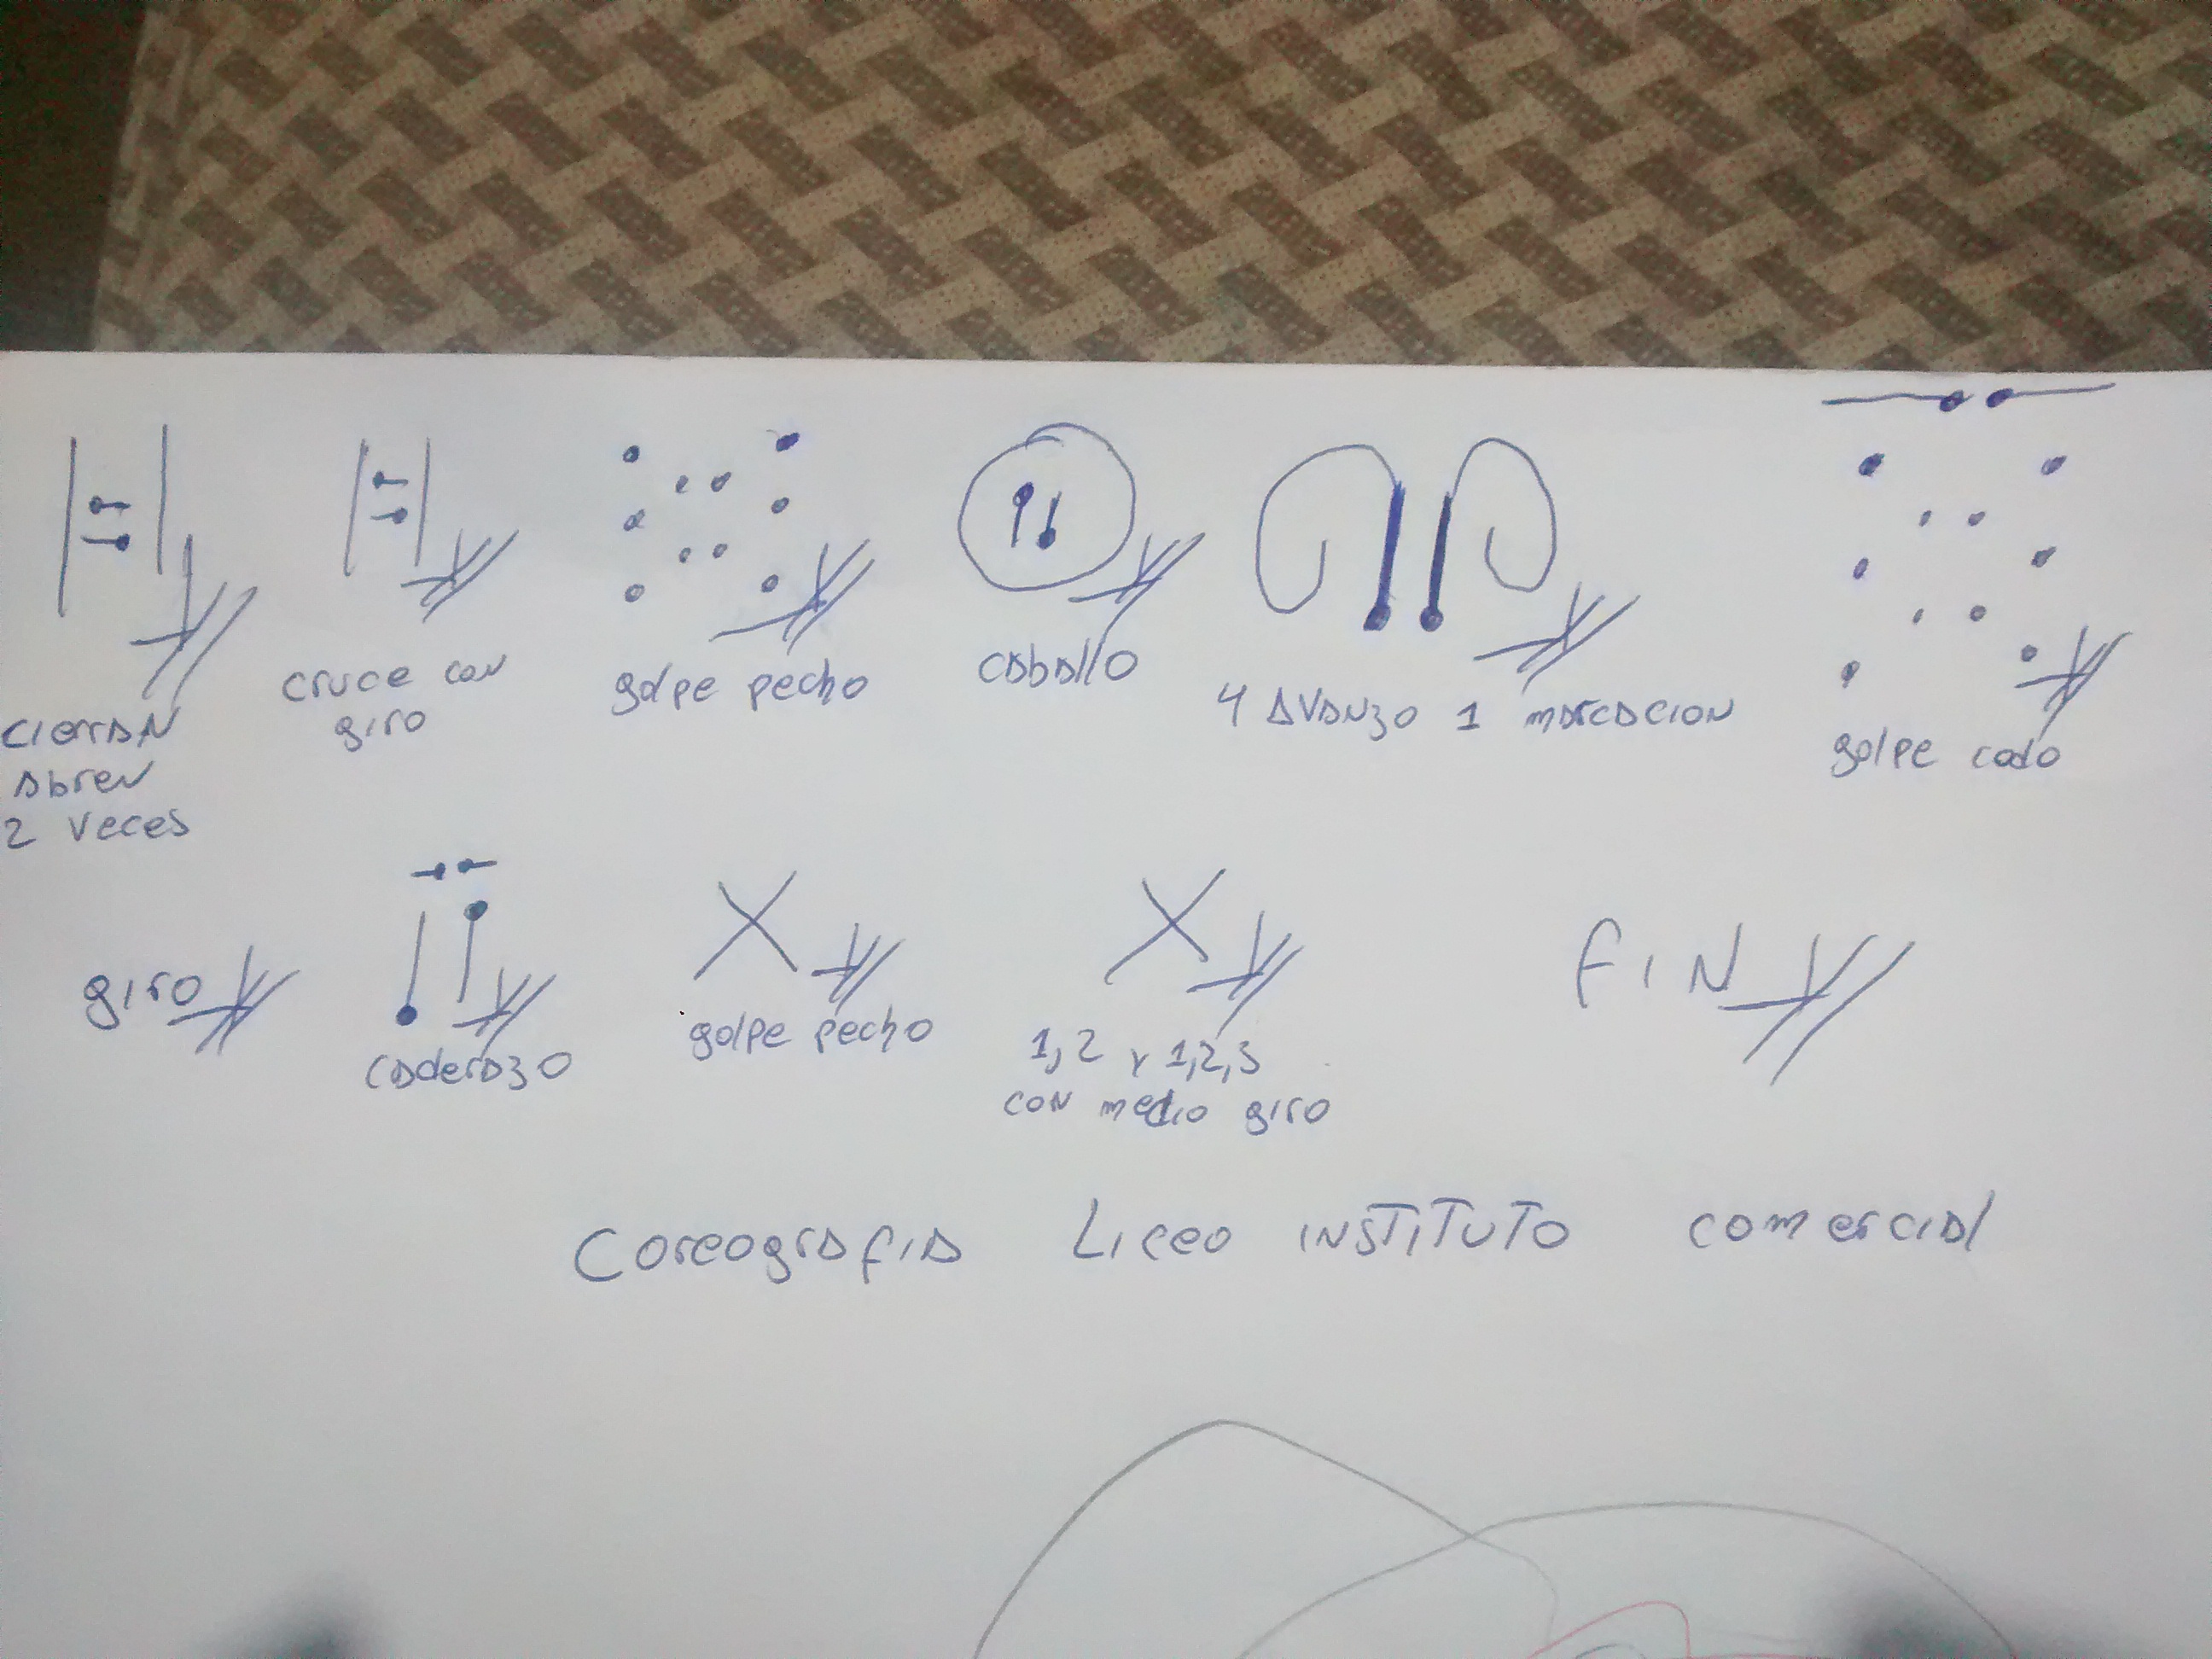 cierran
abren
2 veces
cruce con
giro
golpe pecho
caballo
4 avanzo 1 marcacion
golpe codo
giro
caderazo
golpe pecho
1,2 y 1,2,3
con medio giro
FIN
Coreografia Liceo instituto comercial